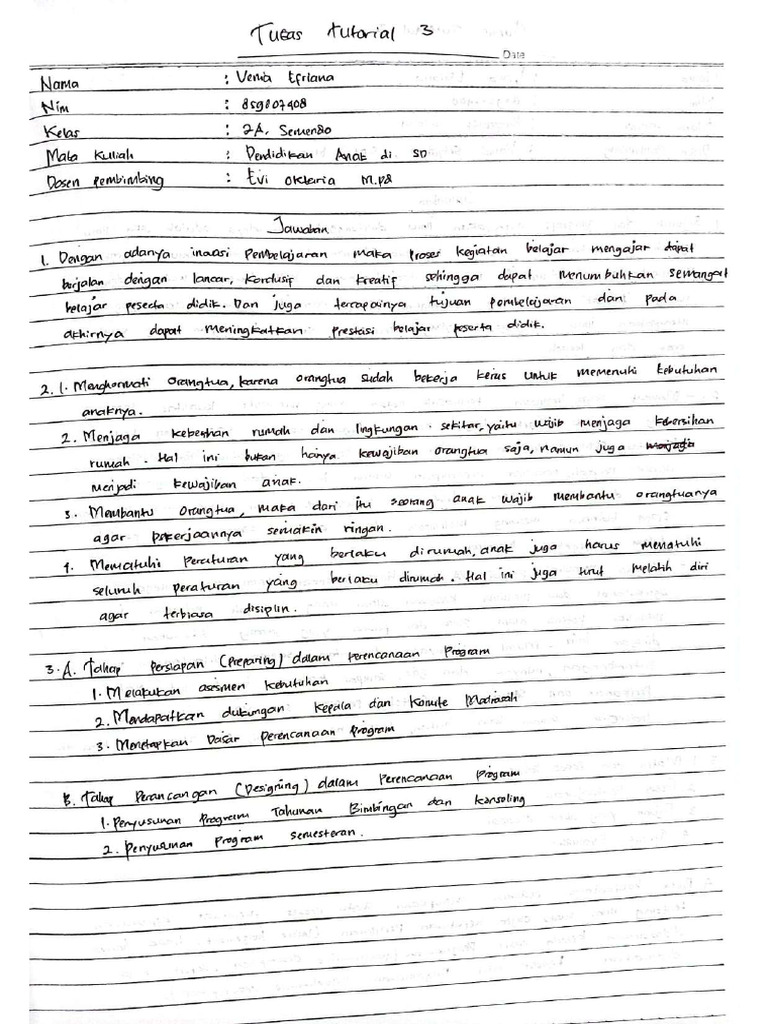 Tugas tutorial 3
Date
Nama : Venta Efrlana
Nim : 859807408
Kelas : 2A. Semendo
Mata Kuliah : Pendidikan Anak di SD
Dosen Pembimbing : Evi Oktaria M.pd
Jawaban
1. Dengan adanya inovasi Pembelajaran maka Proses kegiatan belajar mengajar dapat
berjalan dengan lancar, Kondusif dan Kreatif sehingga dapat menumbuhkan semangat
belajar peserta didik. Dan juga tercapainya tujuan pembelajaran dan pada
akhirnya dapat meningkatkan prestasi belajar peserta didik.
2. 1. Menghormati Orangtua, karena orangtua sudah bekerja keras untuk memenuhi kebutuhan
anaknya.
2. Menjaga kebersihan rumah dan lingkungan sekitar, yaitu wajib menjaga kebersihan
rumah. Hal ini bukan hanya kewajiban orangtua saja, namun juga
menjadi kewajiban anak.
3. Membantu orangtua, maka dari itu seorang anak wajib membantu orangtuanya
agar pekerjaannya semakin ringan.
4. Mematuhi peraturan yang berlaku dirumah, anak juga harus mematuhi
seluruh peraturan yang berlaku dirumah. Hal ini juga turut melatih diri
agar terbiasa disiplin.
3. A. Tahap Persiapan (Preparing) dalam perencanaan Program
1. Melakukan asesmen kebutuhan
2. Mendapatkan dukungan kepala dan Komite Madrasah
3. Menetapkan Dasar perencanaan Program
B. Tahap Perancangan (Designing) dalam Perencanaan Program
1. Penyusunan Program Tahunan Bimbingan dan konsoling
2. Penyusunan Program semesteran.